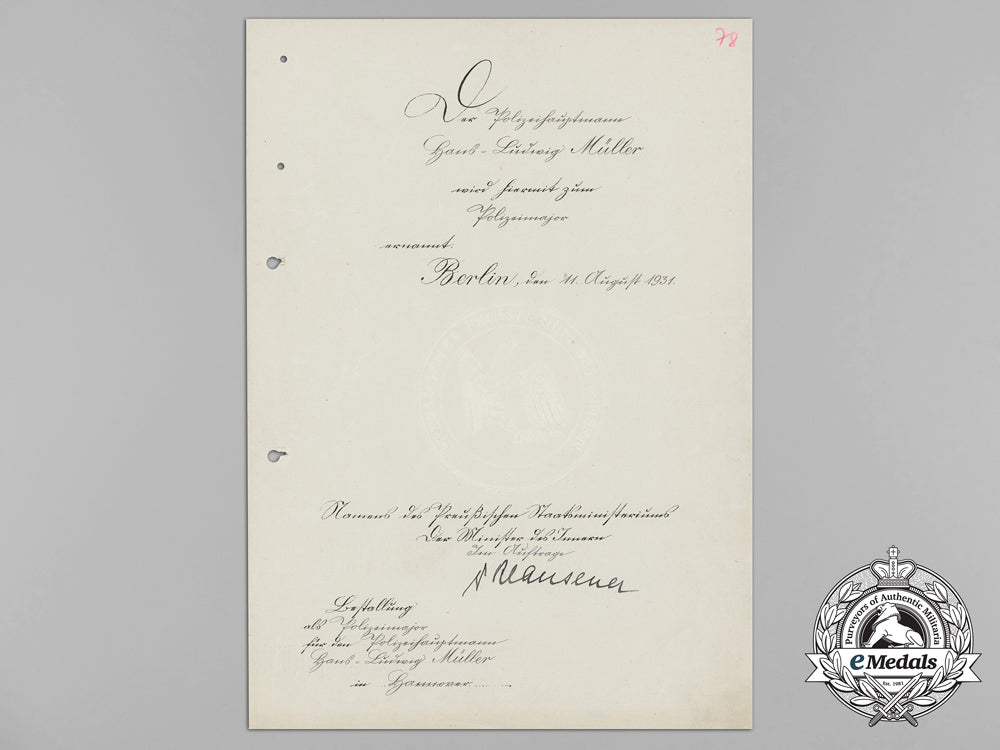 78
Der Polizeihauptmann
Hans-Ludwig Müller
wird hiermit zum
Polizeimajor
ernannt.
Berlin, den 11. August 1931.
Namens des Preußischen Staatsministeriums
Der Minister des Innern
Im Auftrage
Klausener
Bestallung
als Polizeimajor
für den Polizeihauptmann
Hans-Ludwig Müller
in Hannover
Purveyors of Authentic Militaria
eMedals
Est. 1981